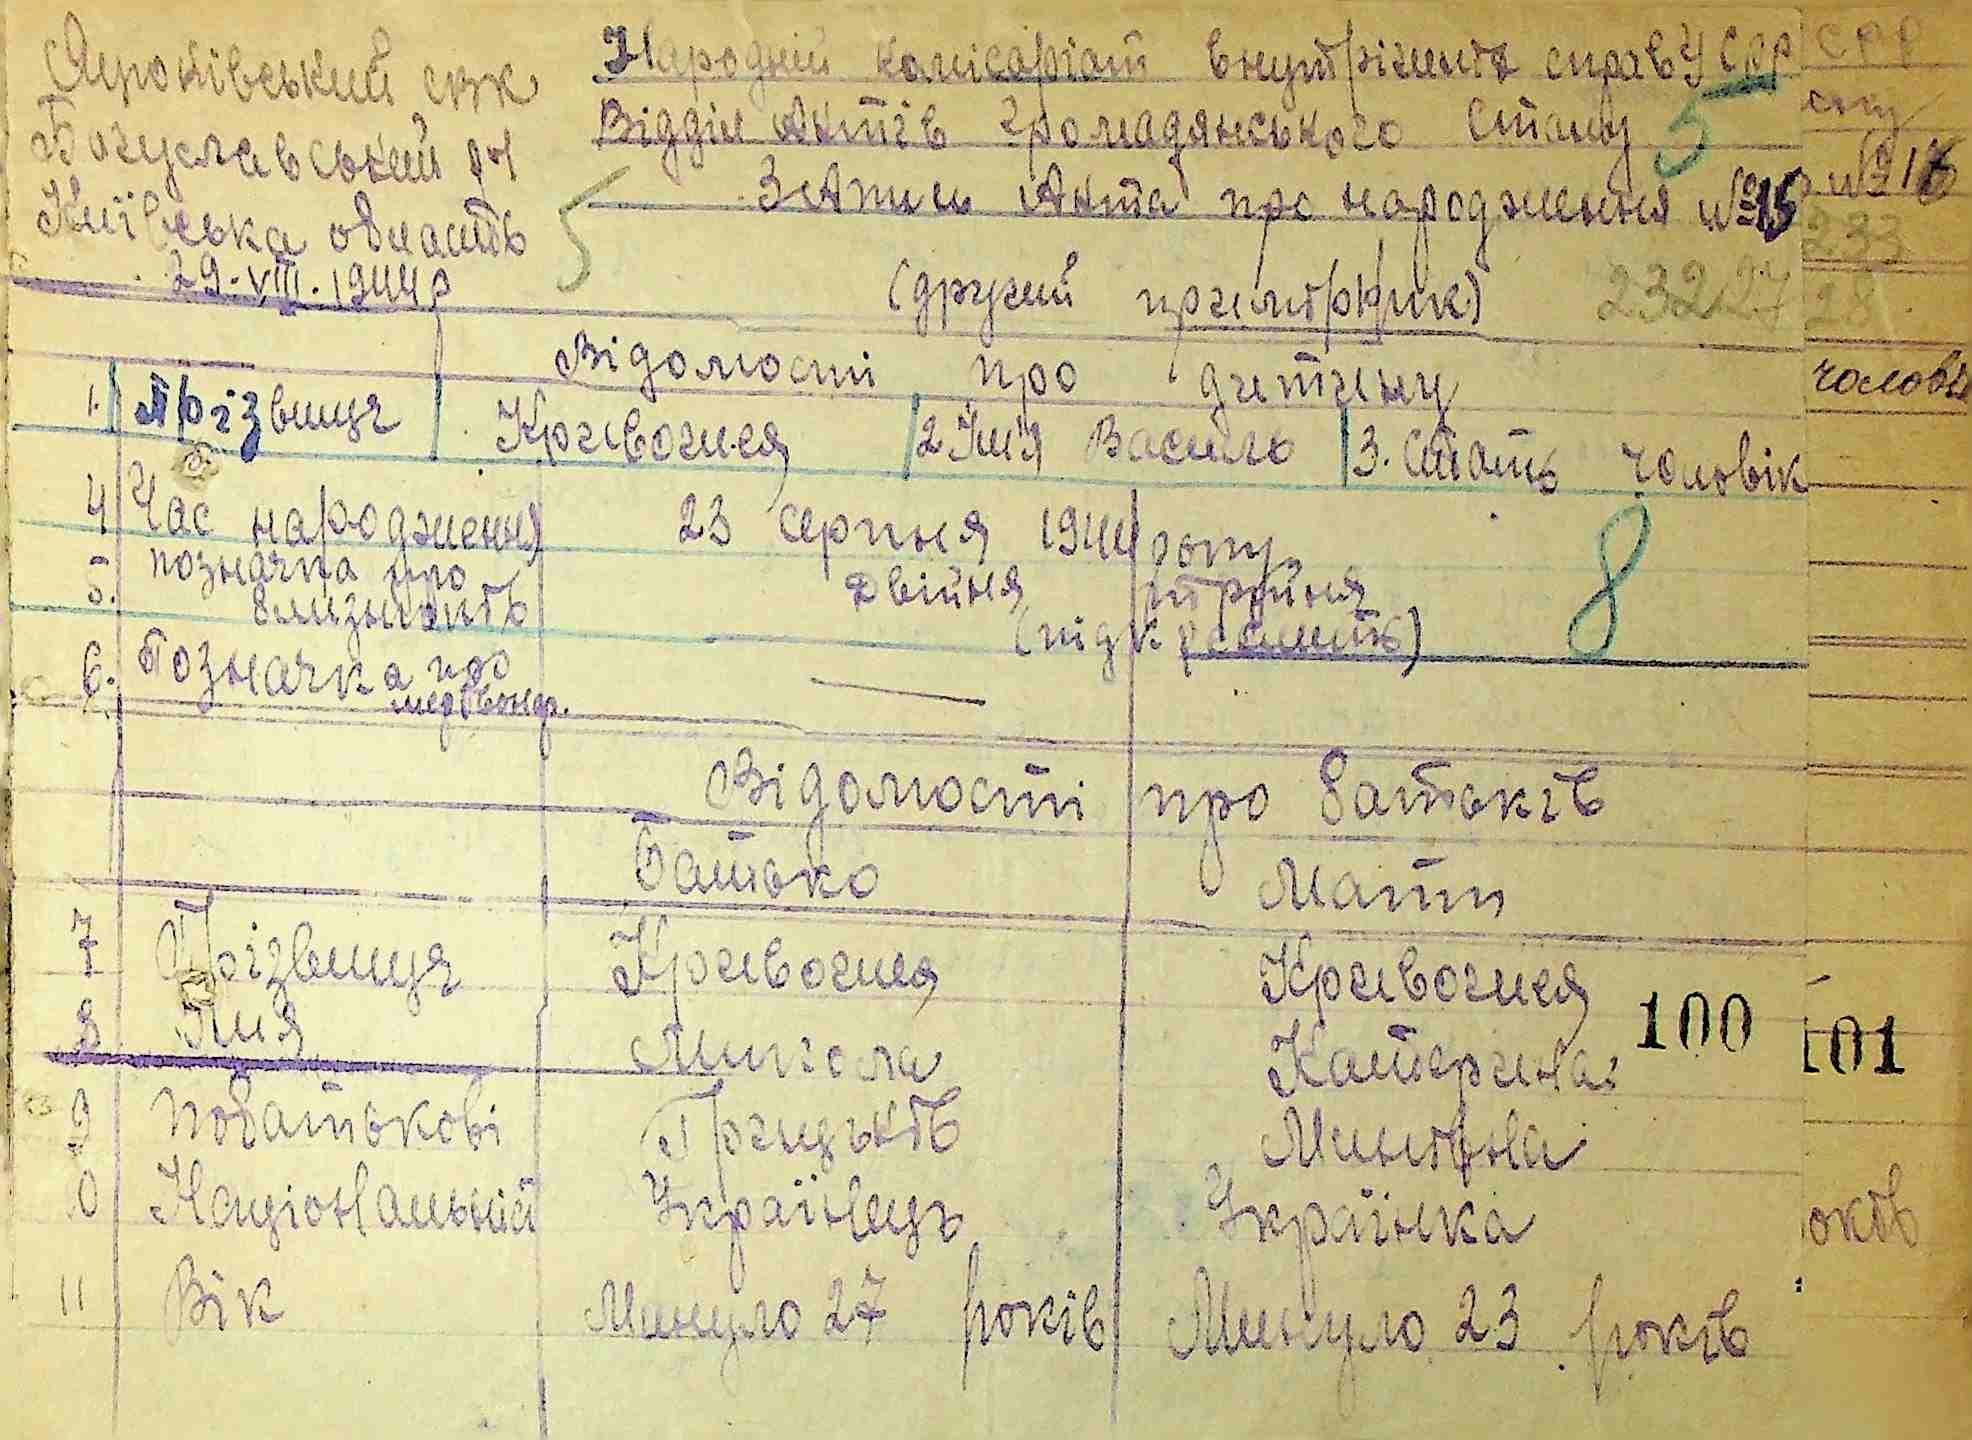 Яцюківський свк
Богуславський р-н
Київська область
29.VIII.1944р
Народній комісаріат внутрішніх справ УСРР
Відділ Актів громадянського стану
5
5
Запис Акта про народження №15
(другий примірник)
232 27
Відомості про дитину
1. Прізвище Кривошея 2 Імя Василь 3. Стать Чоловік
4 Час народження 23 серпня 1944 року
5. позначка про близьнять Двійня тройня
(підкреслить)
8
6. Позначка про мертвонар. —
Відомості про батьків
Батько Мати
7 Прізвище Кривошея Кривошея
8 Імя Микола Катерина
100
9 Побатькові Грицьків
0 Національній Українець Українка
11 Вік Минуло 27 років Минуло 23 років
СРР
№ 16
233
28
чоловік
101
оків